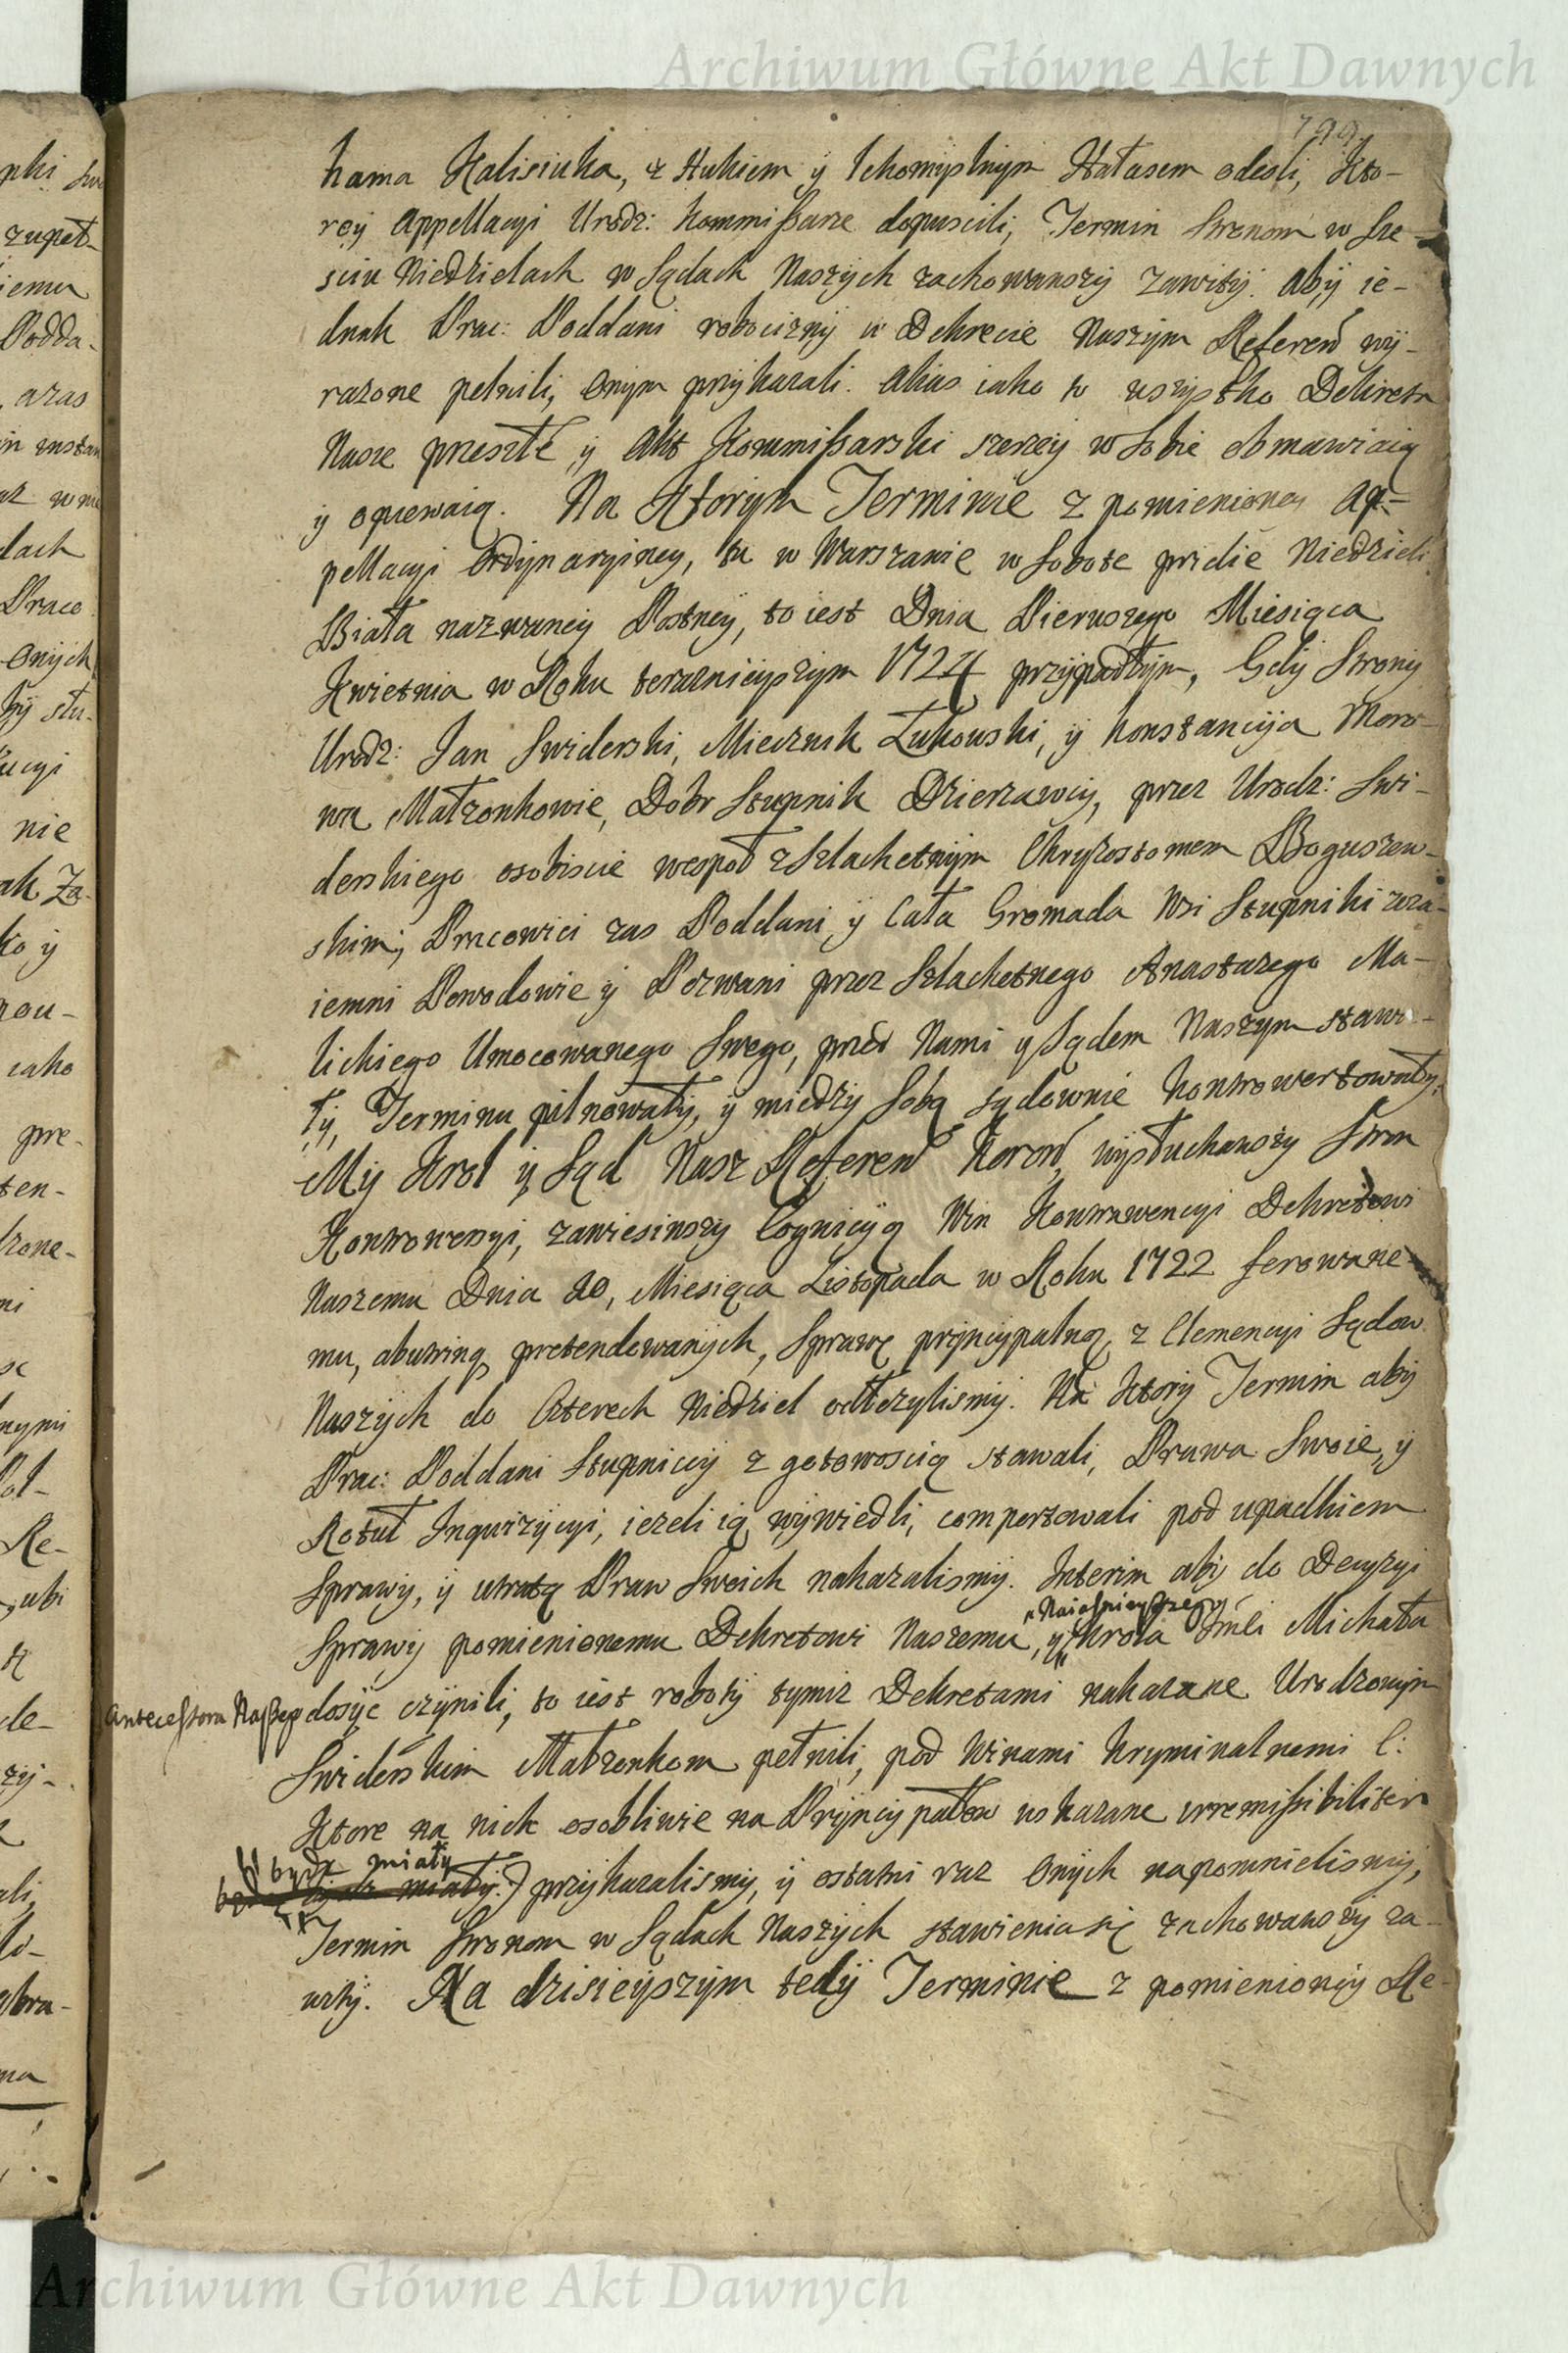 Archiwum Główne Akt Dawnych
799
hama Kalisiuka, z Hukiem y lekomyslnym Hałasem odesli, Kto-
rey Appellacyi Urodz: Kommissarze dopuscili, Termin Stronom w sze-
sciu Niedzielach w Sądach Naszych zachowawszy zawity. Aby ie-
dnak Prac: Poddani robocizny w Dekrecie Naszym Referen wy-
razone pełnili, onym przykazali. Alias iako to wszystko Dekreta
Nasze przeszłe y Akt Kommissarski szerzey w sobie obmawiaią
y opiewaią. Na Ktorym Terminie z pomienioney Ap-
pellacyi Ordynaryiney, tu w Warszawie w Sobote pridie Niedzieli
Biała nazwaney Postney, to iest Dnia Pierwszego Miesiąca
Kwietnia w Roku teraznieyszym 1724 przypadłym, Gdy Strony
Urodz: Jan Swiderski, Miecznik Łukowski, y Konstancyja Moro-
wn Małzonkowie, Dobr Stupnik Dzierzawcy, przez Urodz: Swi-
derskiego osobiscie wespoł z Szlachetnym Chryzostomem Boguszew-
skim, Pracowici zas Poddani y Cała Gromada Wsi Stupniki wza-
iemni Powodowie y Pozwani przez Szlachetnego Anastazego Ma-
lickiego Umocowanego Swego, przed Nami y Sądem Naszym stawi-
ły, Terminu pilnowały, y miedzy Sobą sądownie kontrowertowały,
My Krol y Sąd Nasz Referen Koron, wysłuchawszy Stron
Kontrowersyi, zawiesiwszy Cognicyą Win Kontrawencyi Dekretowi
Naszemu Dnia 20, Miesiąca Listopada w Roku 1722 ferowane-
mu, abutrinq pretendowanych, Sprawę pryncypalną z Clemencyi Sądow
Naszych do Czterech Niedziel odłozylismy. Na Ktory Termin aby
Prac: Poddani Stupniccy z gotowoscią stawali, Prawa Swoie, y
Rotuł Inquizycyi, iezeli ią wywiedli, comportowali pod upadkiem
Sprawy, y utratą Praw Swoich nakazalismy. Interim aby do Decyzyi
Nayiasnieyszego
Sprawy pomienionemu Dekretowi Naszemu, y Krola Jmci Michała
Antecessora Naszego dosyc czynili, to iest roboty tymiz Dekretami nakazane Urodzonym
Swiderskim Małzonkom pełnili, pod Winami Kryminalnemi (:
Ktore na nich osobliwie na Pryncypałow wskazane irremissibiliter
bydz miały
przykazalismy, y ostatni raz Onych napomnielismy,
Termin Stronom w Sądach Naszych stawienia się zachowawszy za-
wity. Na dzisieyszym tedy Terminie z pomienioney Re-
Archiwum Główne Akt Dawnych